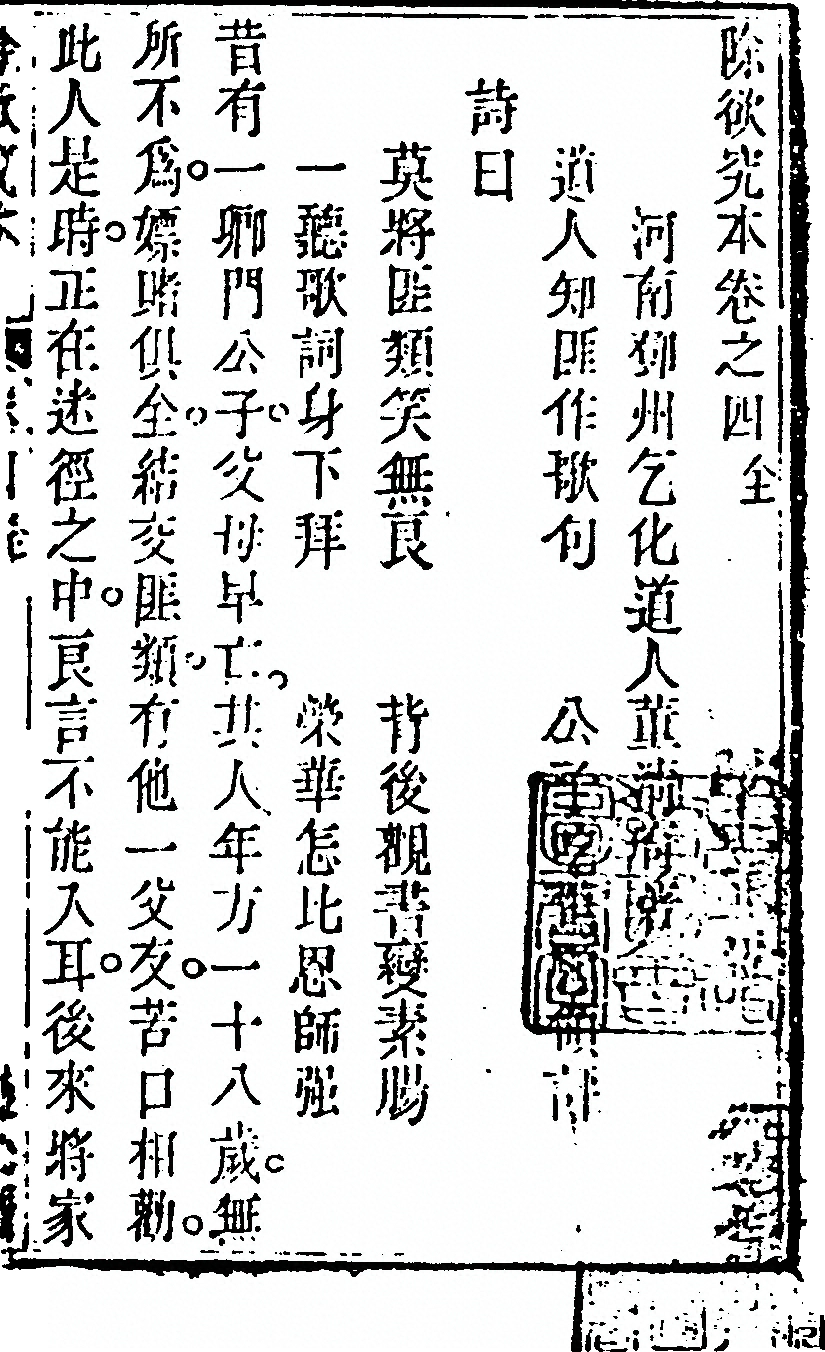 除欲究本卷之四全
河南鄧州乞化道人董
道人知匪作歌句　公
詩曰
莫將匪類笑無良　背後觀書變素腸
一聽歌詞身下拜　榮華怎比恩師强
昔有一鄉門公子父母早亡其人年方一十八歲無
所不爲嫖賭俱全結交匪類有他一父友苦口相勸
此人是時正在迷徑之中良言不能入耳後來將家